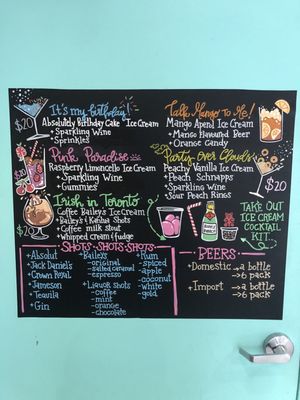 It's my birthday!
Absolutely Birthday Cake Ice Cream
+ Sparkling Wine
+ Sprinkles
$20
Pink Paradise
Raspberry Limoncello Ice Cream
+ Sparkling Wine
+ Gummies
$20
Irish in Toronto
Coffee Bailey's Ice Cream
+ Bailey's & Kahlua Shots
+ Coffee milk stout
+ Whipped cream & fudge
$20
Talk Mango to Me!
Mango Aperol Ice Cream
+ Mango Flavoured Beer
+ Orange Candy
Party over Clouds
Peachy Vanilla Ice Cream
+ Peach Schnapps
+ Sparkling Wine
+ Sour Peach Rings
$20
TAKE OUT
ICE CREAM
COCKTAIL
KIT
SHOTS-SHOTS-SHOTS
+ Absolut
+ Jack Daniel's
+ Crown Royal
+ Jameson
+ Tequila
+ Gin
+ Baileys
- original
- salted caramel
- espresso
+ Liquor Shots
- coffee
- mint
- orange
- chocolate
+ Rum
- spiced
- apple
- coconut
- white
- gold
BEERS
Domestic → a bottle
→ 6 pack
Import → a bottle
→ 6 pack